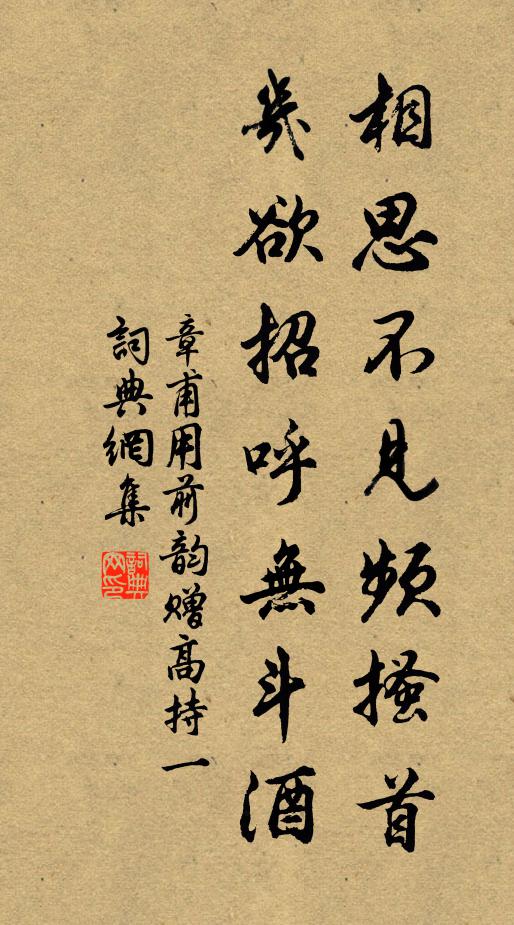 相思不見頻搔首
幾欲招呼無斗酒
章甫用前韵贈高持一
詞典網集
詞典網印